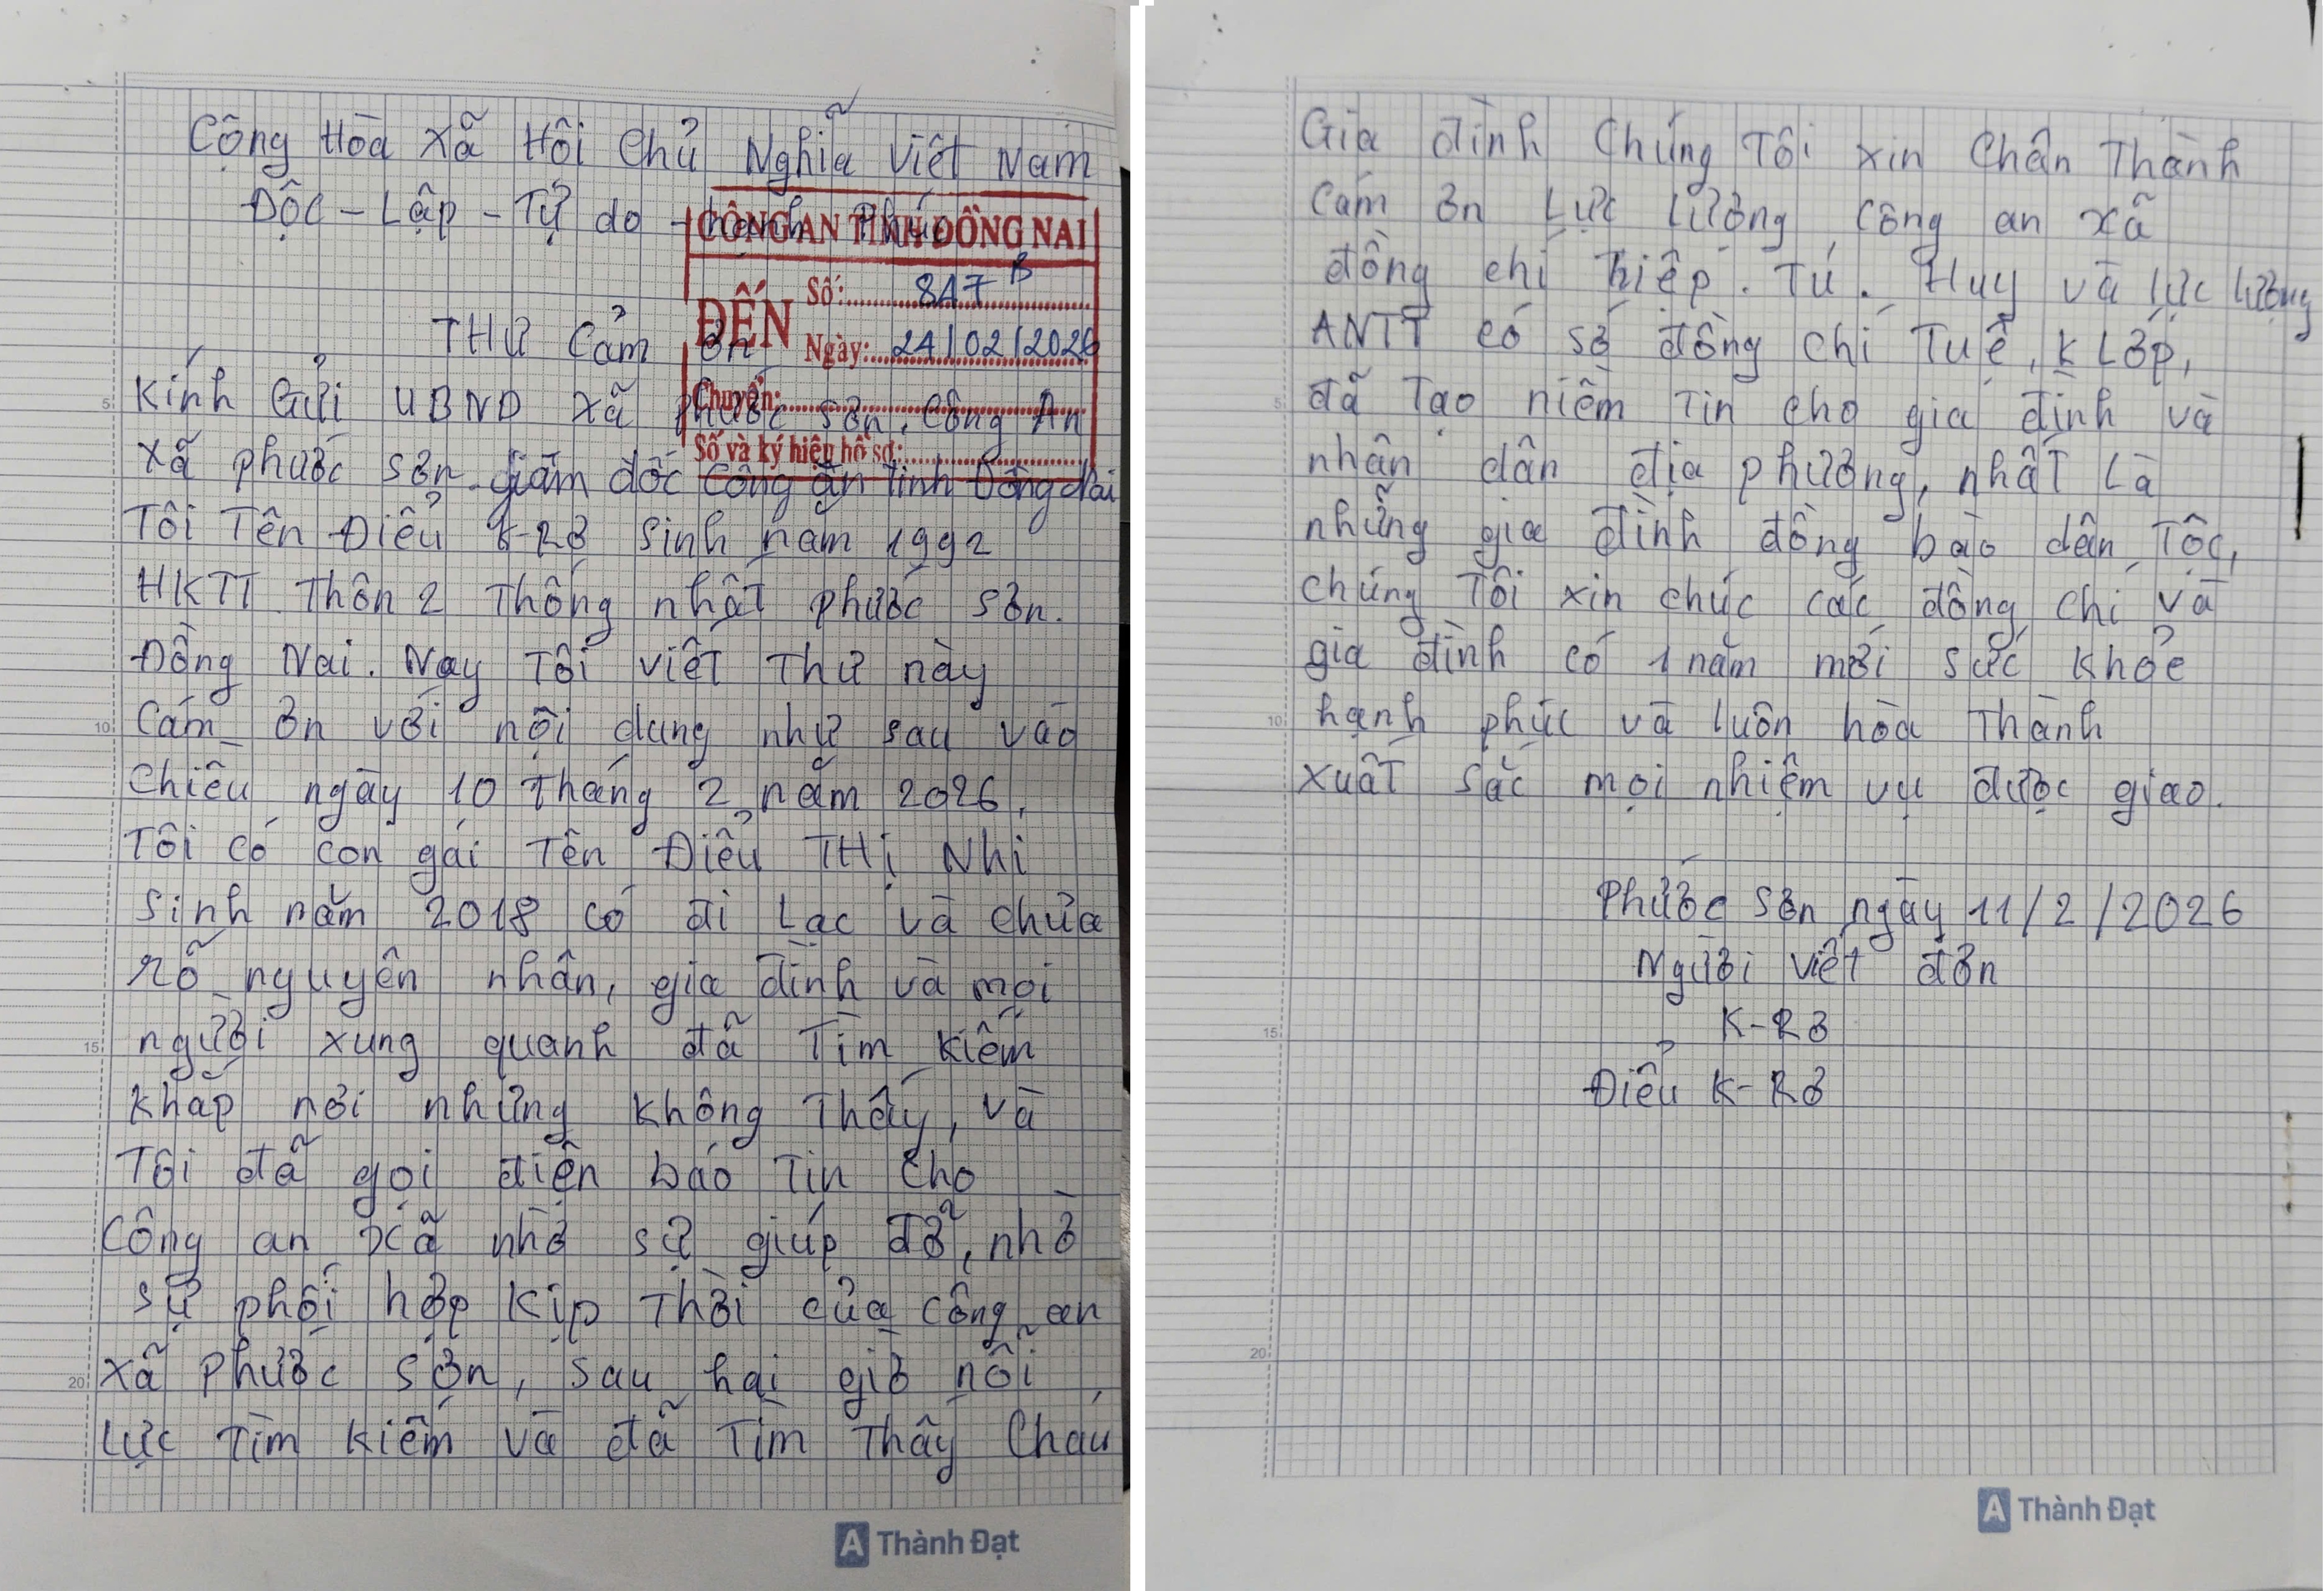 Cộng Hòa Xã Hội Chủ Nghĩa Việt Nam
Độc - Lập - Tự do - hạnh Phúc
CÔNG AN TỈNH ĐỒNG NAI
ĐẾN
Số: 847 B
Ngày: 24/02/2026
Chuyển:
Số và ký hiệu hồ sơ:
THƯ Cảm ơn
Kính Gửi UBND xã phước sơn, Công An
xã phước sơn. giám đốc Công an tỉnh Đồng Nai
Tôi Tên Điểu K-Rơ Sinh năm 1992
HKTT Thôn 2 Thống nhất phước sơn.
Đồng Nai. Nay Tôi viết Thư này
Cám ơn với nội dung như sau vào
Chiều ngày 10 Tháng 2 năm 2026,
Tôi có con gái Tên Điểu THị Nhi
Sinh năm 2018 có đi Lạc và chưa
rõ nguyên nhân, gia đình và mọi
người xung quanh đã Tìm kiếm
khắp nơi nhưng không Thấy, và
Tôi đã gọi điện báo Tin cho
Công an xã nhờ sự giúp đỡ, nhờ
sự phối hợp kịp Thời của công an
xã Phước Sơn, sau hai giờ nỗi
Lực Tìm kiếm và đã Tìm Thấy Cháu
Thành Đạt
Gia đình Chúng Tôi xin Chân Thành
Cám ơn Lực lượng Công an xã
đồng chí hiệp. Tú. Huy và lực lượng
ANTT có số đồng chí Tuệ, K Lớp,
đã Tạo niềm Tin cho gia đình và
nhân dân địa phương, nhất Là
những gia đình đồng bào dân Tộc,
chúng Tôi xin chúc các đồng chí và
gia đình có 1 năm mới sức khỏe
hạnh phúc và luôn hòa Thành
xuất sắc mọi nhiệm vụ được giao.
Phước Sơn ngày 11/2/2026
Người viết đơn
K-Rơ
Điểu K-Rơ
Thành Đạt